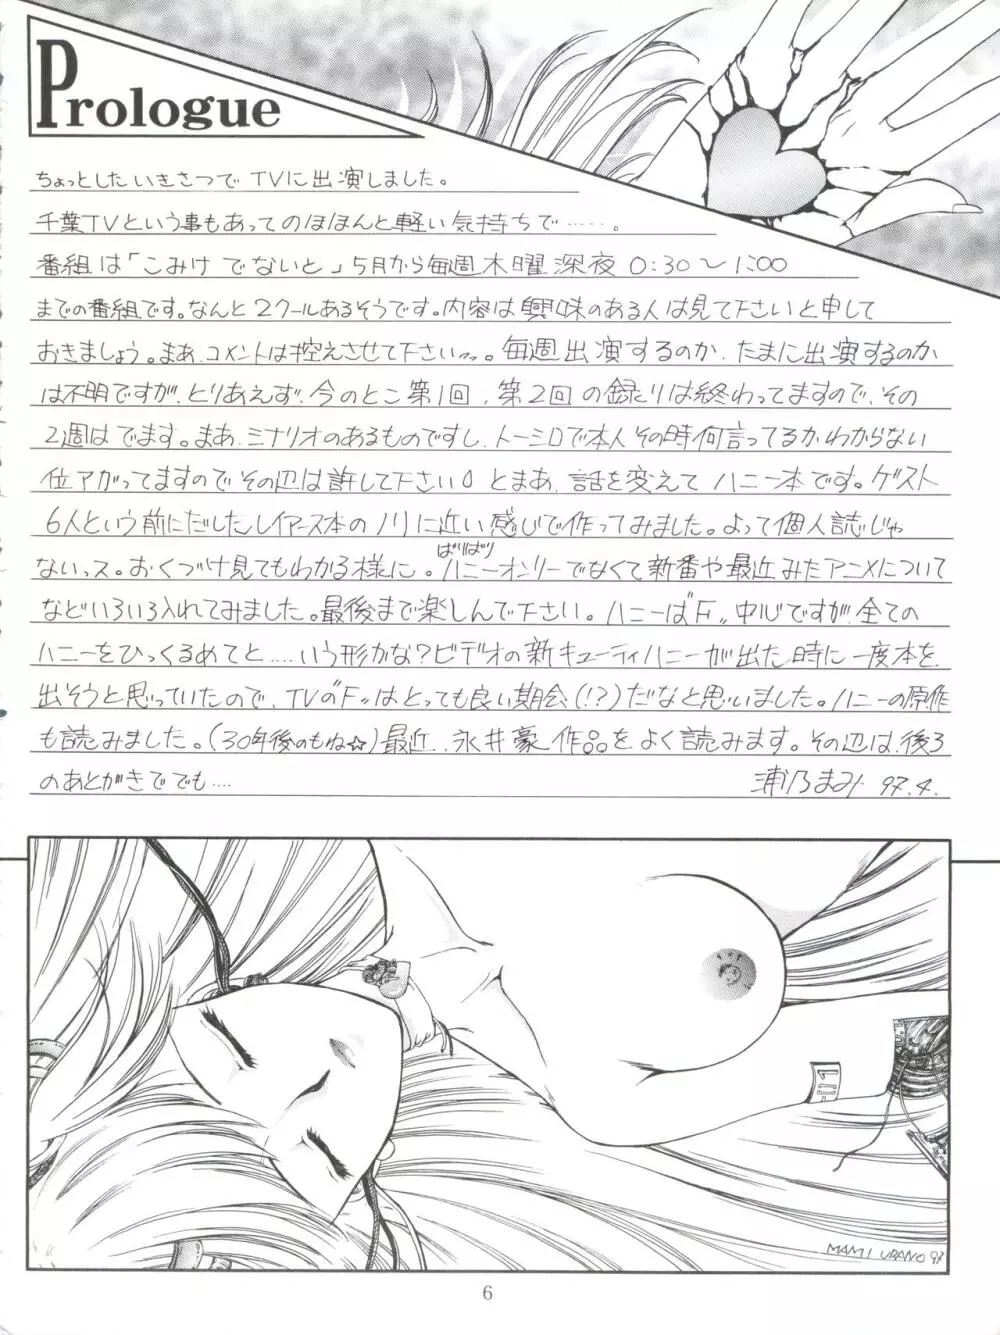 Prologue
ちょっとしたいきさつでTVに出演しました。
千葉TVという事もあってのほほんと軽い気持ちで……。
番組は「こみけでないと」5月から毎週木曜深夜0:30〜1:00
までの番組です。なんと2クールあるそうです。内容は興味のある人は見て下さいと申して
おきましょう。まあ、コメントは控えさせて下さい…。毎週出演するのか、たまに出演するのか
は不明ですが、とりあえず、今のとこ第1回、第2回の録りは終わってますので、その
2週はでます。まあ、シナリオのあるものですし、トーシロで本人その時何言ってるかわからない
位アガってますのでその辺は許して下さい。とまあ、話を変えてハニー本です。ゲスト
6人という前にだしたレイアース本のノリに近い感じで作ってみました。よって個人誌じゃ
ないっス。おくづけ見てもわかる様に。ばりばりハニーオンリーでなくて新番や最近みたアニメについて
などいろいろ入れてみました。最後まで楽しんで下さい。ハニーは"F"中心ですが全ての
ハニーをひっくるめてと……いう形かな?ビデオの新キューティハニーが出た時に一度本を
出そうと思っていたので、TVの"F"はとっても良い期会(!?)だなと思いました。ハニーの原作
も読みました。(30年後のもね☆)最近、永井豪作品をよく読みます。その辺は、後3
のあとがきででも…. 浦乃まみ 97.4.
MAMI URANO 97
6